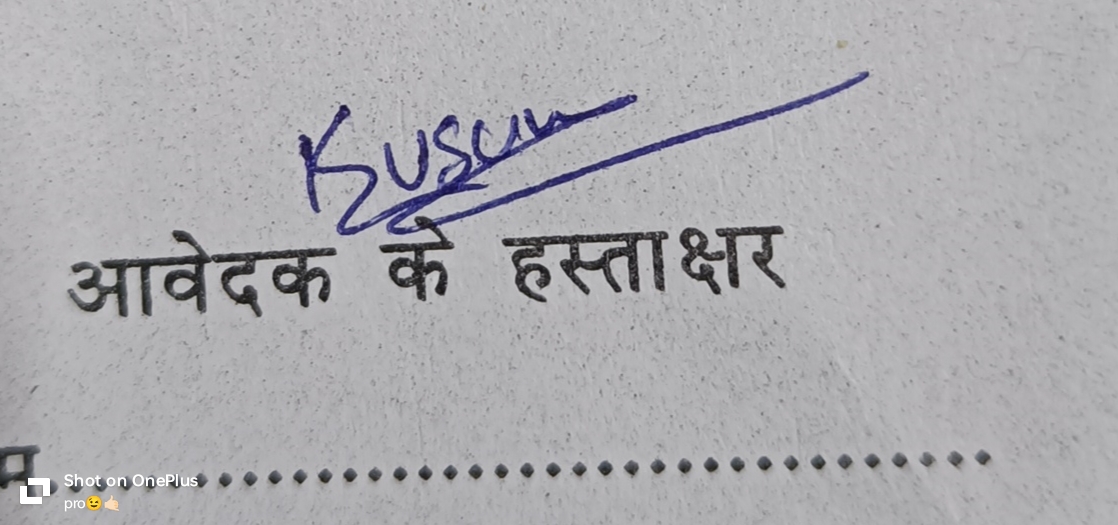 Kusum
आवेदक के हस्ताक्षर
....................................
Shot on OnePlus
pro😉🤙🏻